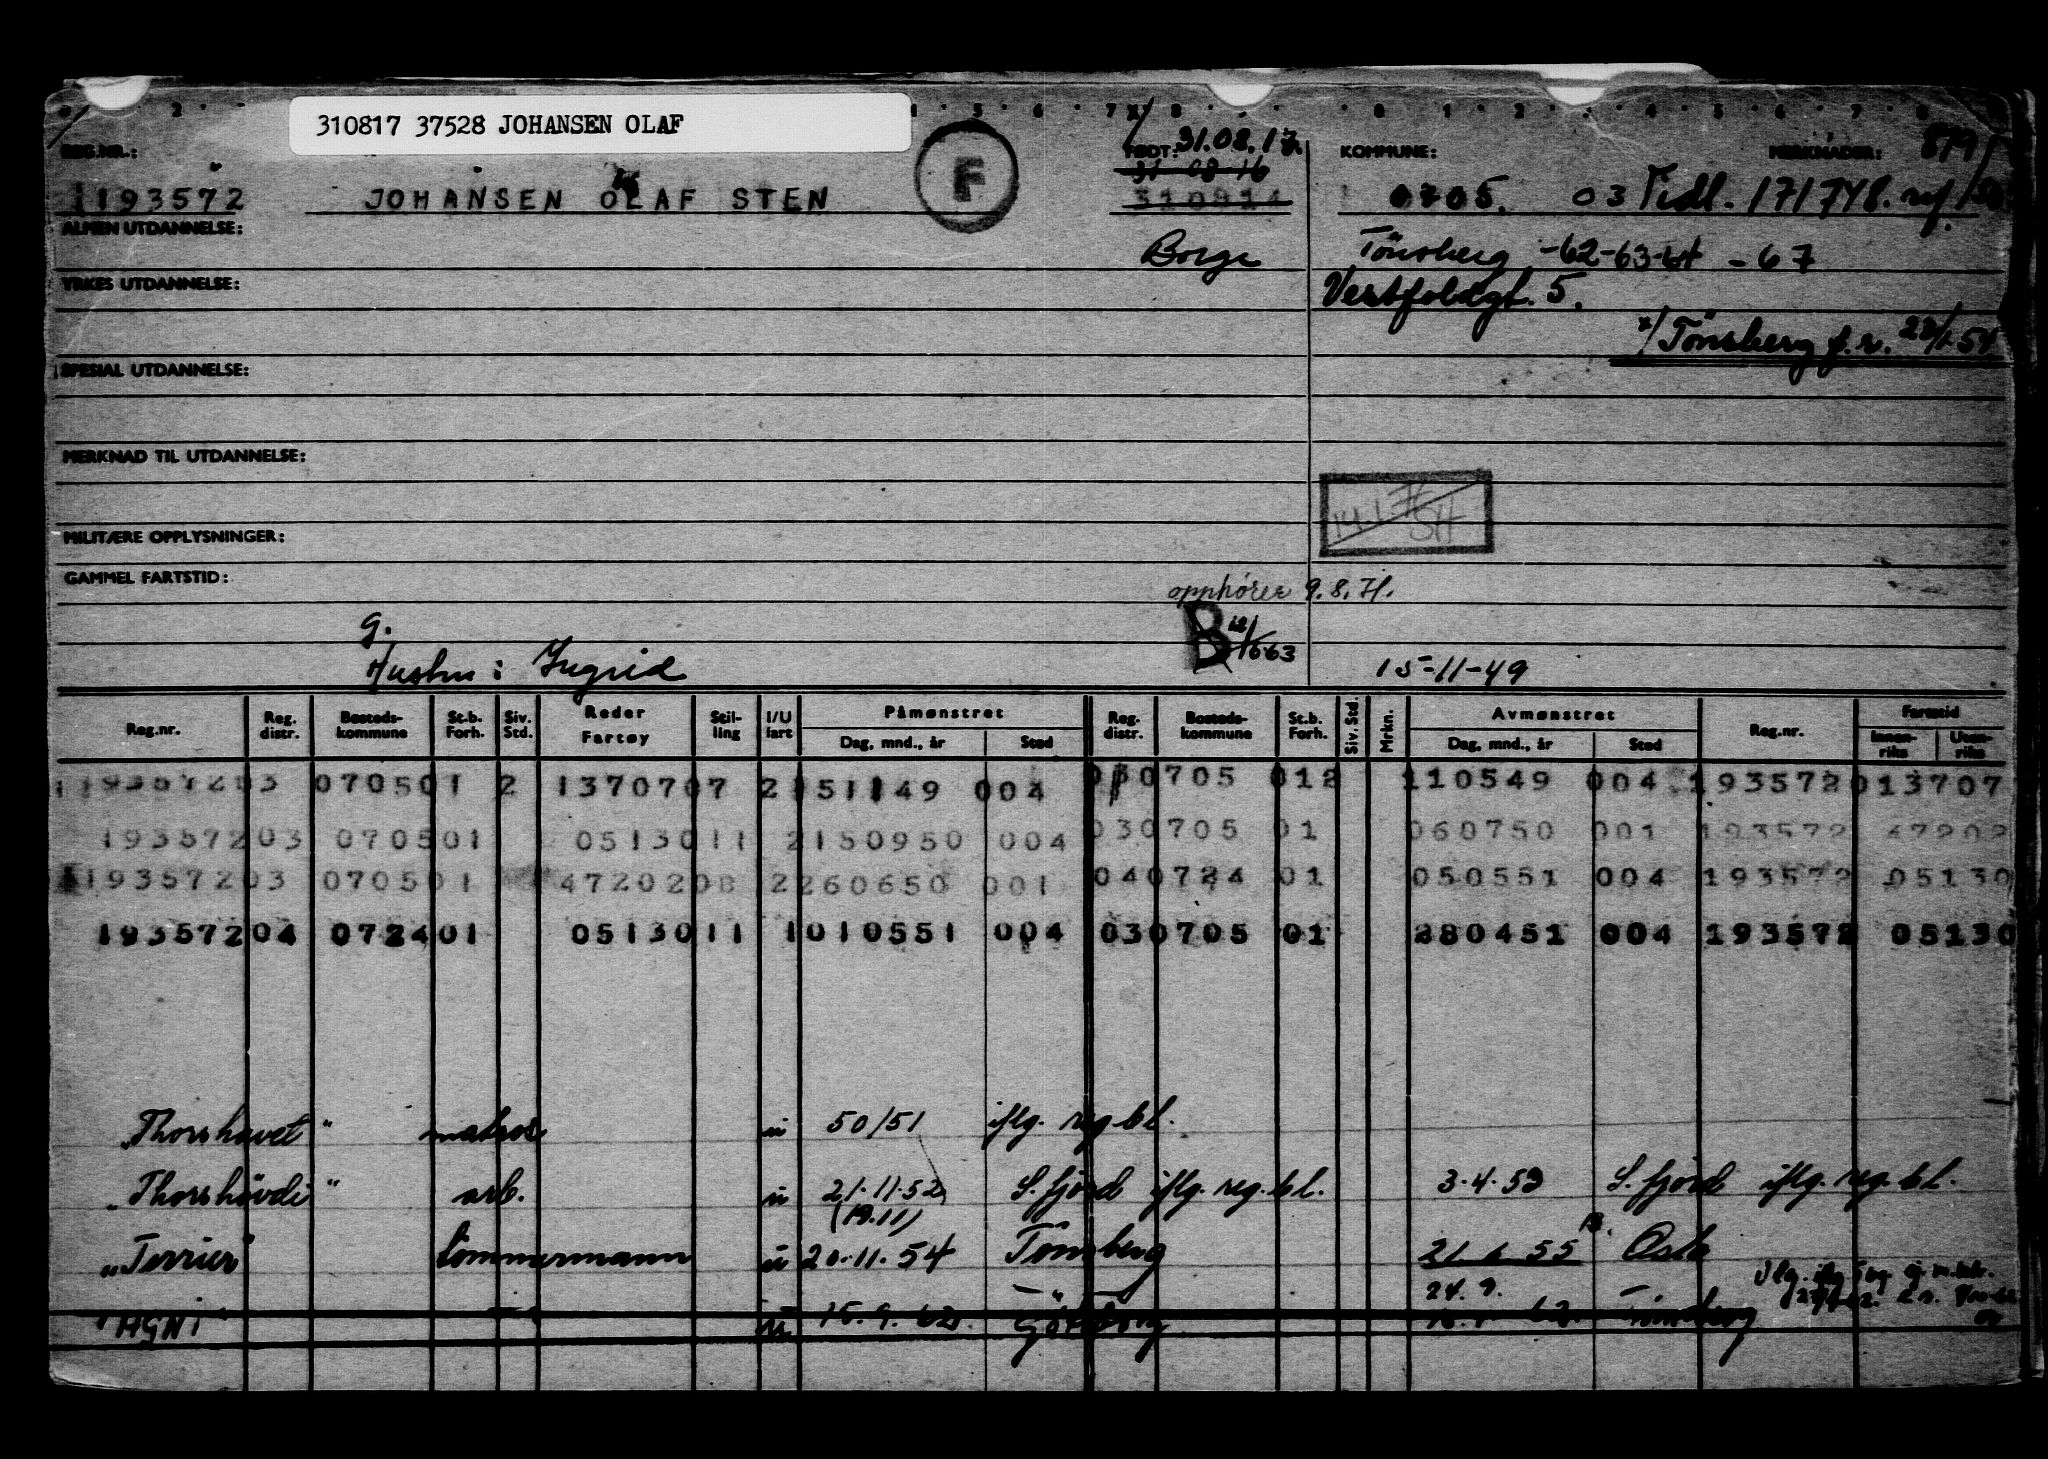 310817 37528 JOHANSEN OLAF
REG.NR.:
FØDT: 31.08.17.
KOMMUNE:
MERKNADER:
1193572 JOHANSEN OLAF STEN
F
31 08 16
310914
0705. 03 Tidl. 171748.
ALMEN UTDANNELSE:
Borge
Tönsberg -62-63-64 -67
YRKES UTDANNELSE:
Vestfoldgt. 5.
x/ Tönsberg f.r. 22/1-54
SPESIAL UTDANNELSE:
MERKNAD TIL UTDANNELSE:
MILITÆRE OPPLYSNINGER:
GAMMEL FARTSTID:
opphører 9.8.71.
g.
B
Hustru: Ingrid
15-11-49
Reg.nr. Reg. distr. Bosteds-kommune St.b. Forh. Siv. Std. Reder Fartøy Stil-ling I/U fart Påmønstret Dag, mnd., år Sted Reg. distr. Bosteds-kommune St.b. Forh. Siv. Std. Mrkn. Avmønstret Dag, mnd., år Sted Reg.nr. Fartstid Innen-riks Uten-riks
1193572 03 0705 01 2 13707 07 2 151149 004 030705 012 110549 004 193572 013707
193572 03 0705 01 05130 11 2 150950 004 030705 01 060750 001 193572 47202
193572 03 0705 01 47202 08 2 260650 001 040724 01 050551 004 193572 05130
193572 04 0724 01 05130 11 1 010551 004 030705 01 280451 004 193572 05130
"Thorshavet" matros u 50/51 iflg. reg.bl.
"Thorshövdi" arb. u 21.11.52 S.fjord iflg. reg.bl. 3.4.53 S.fjord iflg. reg.bl.
(19.11)
"Terrier" tömmermann u 20.11.54 Tönsberg 21 6 55 Oslo
24.9.
"AGNI" u 15.9.62. Göteborg Tönsberg